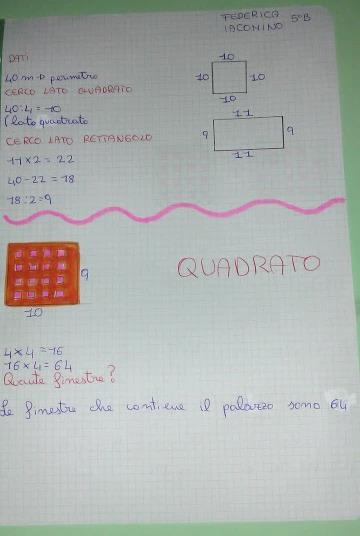 FEDERICA
IACONINO 5°B
DATI
40 m → perimetro
CERCO LATO QUADRATO
40:4=10
(lato quadrato
CERCO LATO RETTANGOLO
11×2=22
40-22=18
18:2=9
10
10 10
10
11
9 9
11
QUADRATO
9
10
4×4=16
16×4=64
Quante finestre?
Le finestre che contiene il palazzo sono 64